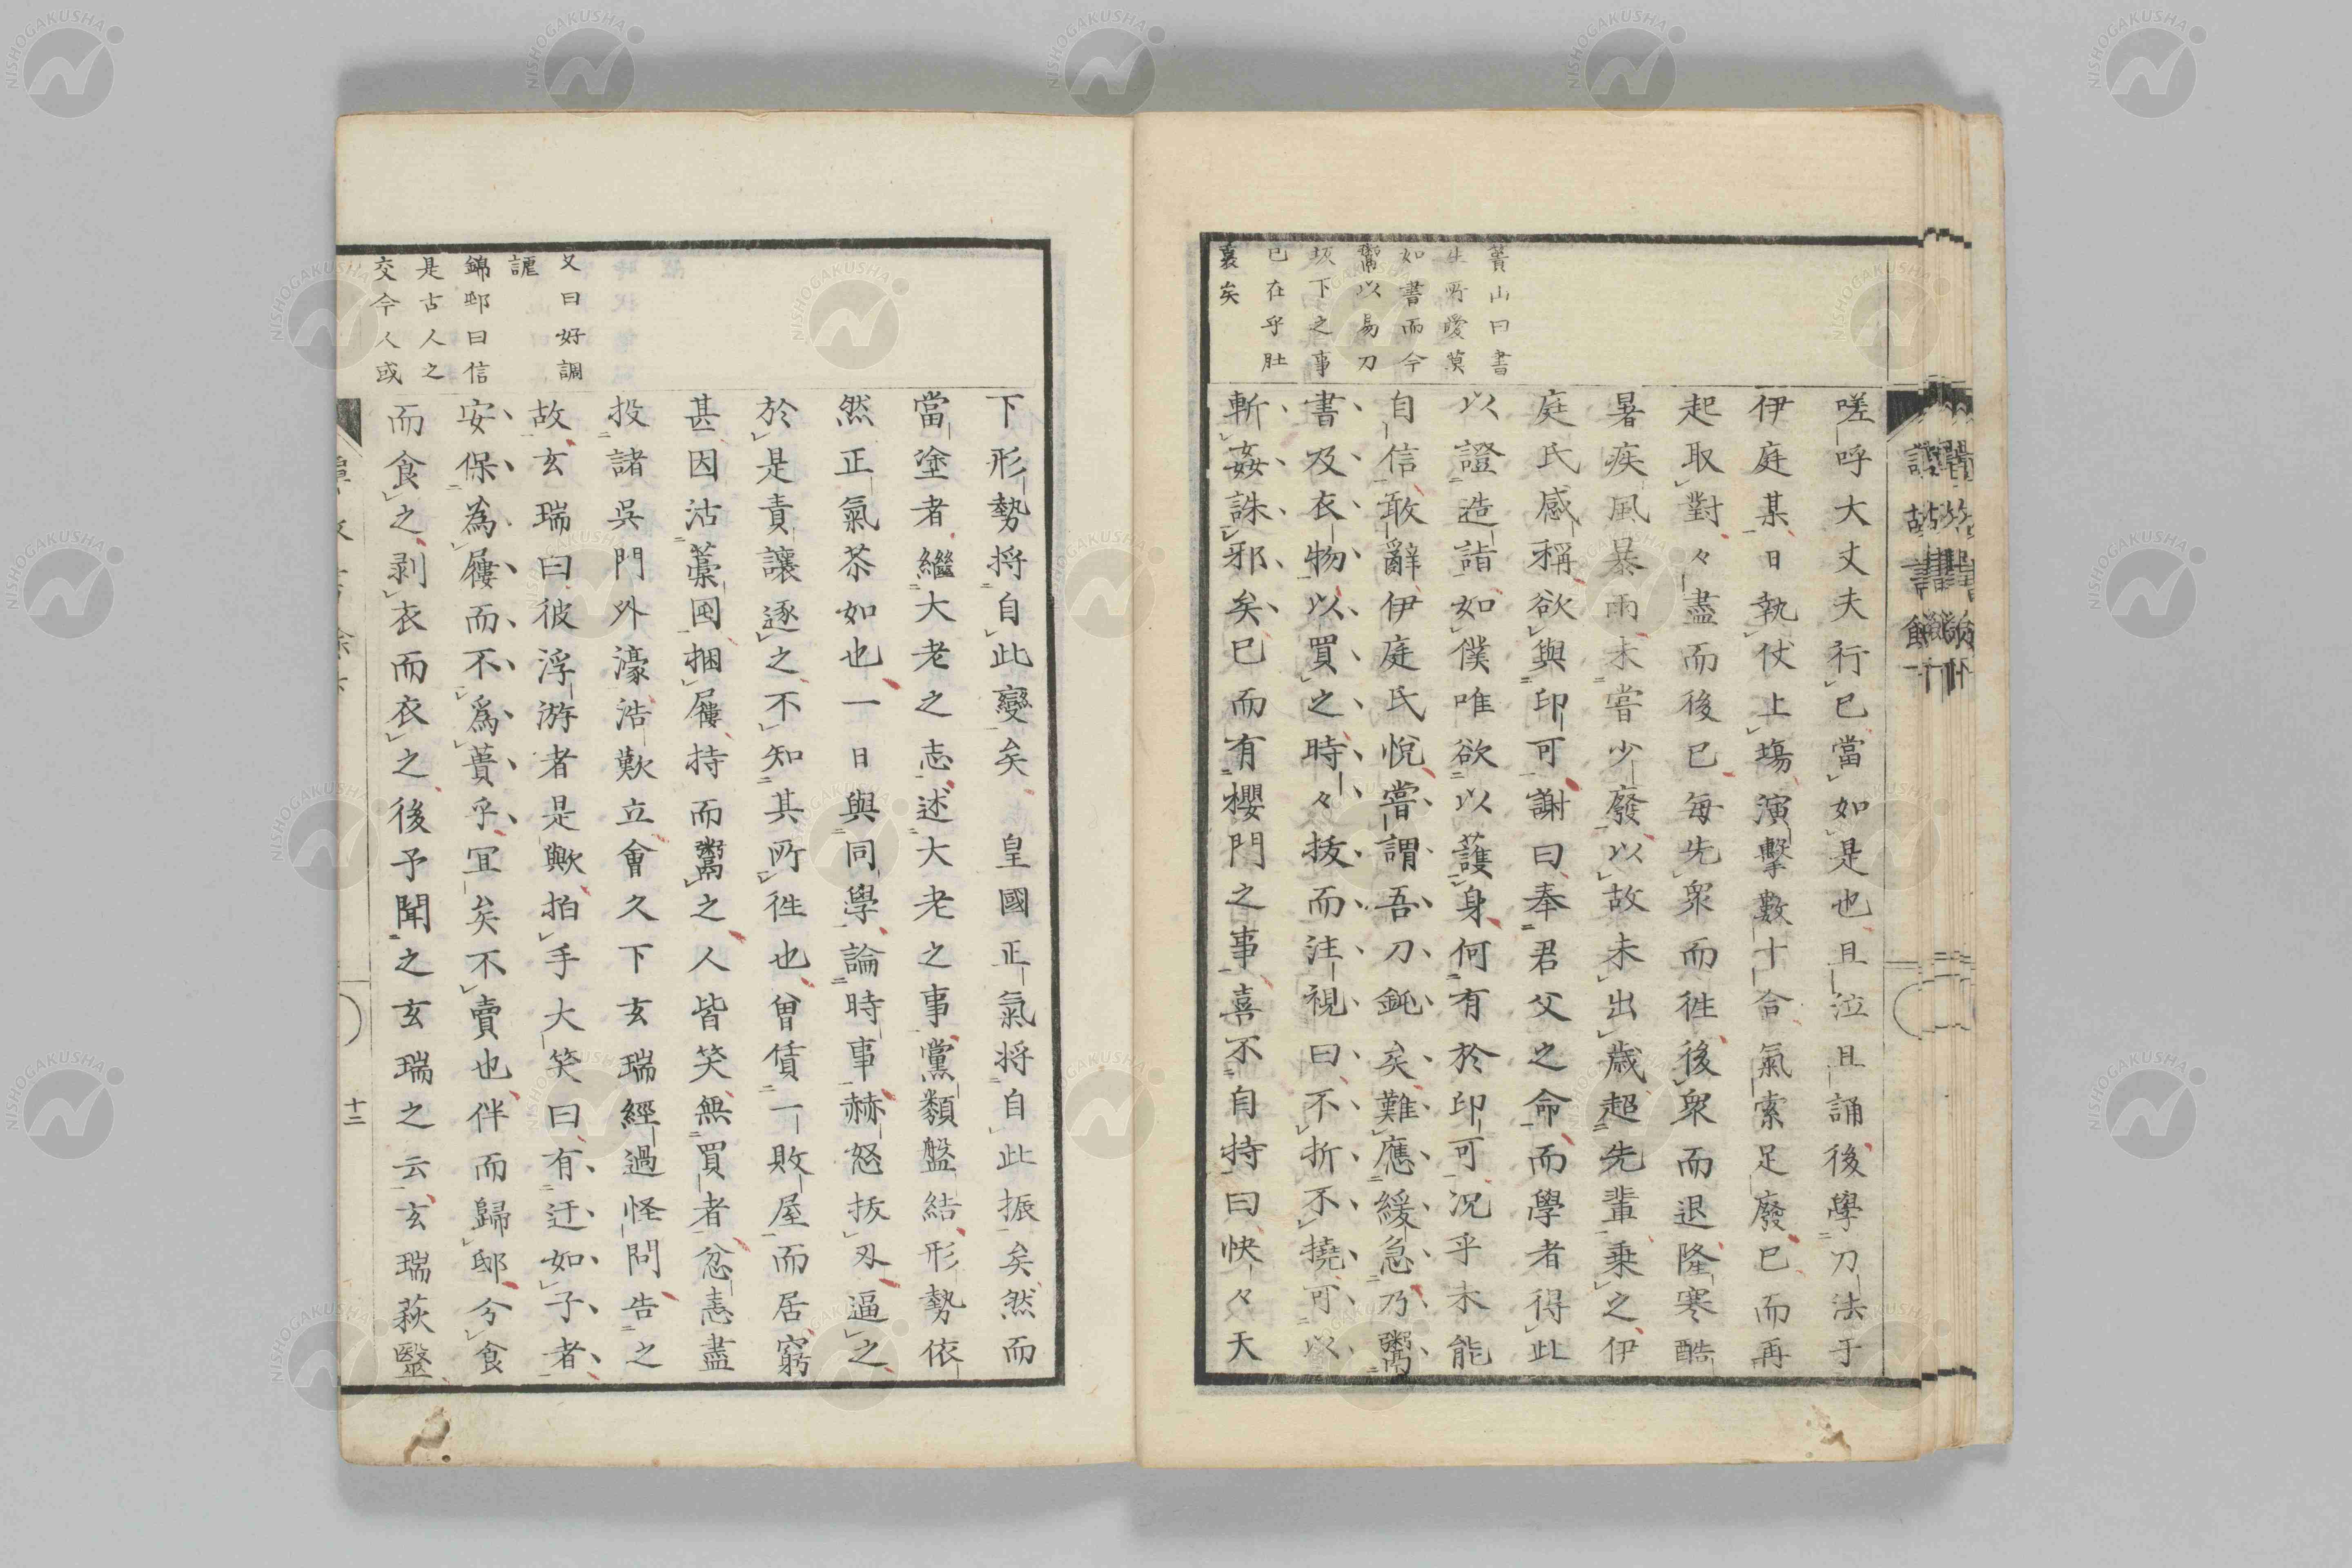 嗟呼大丈夫行已當如是也且泣且誦後學刀法于
伊庭某日執仗上塲演擊數十合氣索足廢已而再
起取對々盡而後已每先衆而徃後衆而退隆寒酷
暑疾風暴雨未嘗少廢以故未出歲超先輩乗之伊
庭氏感稱欲與印可謝曰奉君父之命而學者得此
以證造詣如僕唯欲以護身何有於印可况乎未能
自信敢辭伊庭氏悅嘗謂吾刀鈍矣難應緩急乃鬻
書及衣物以買之時々拔而注視曰不折不撓可以
斬姦誅邪矣已而有櫻門之事喜不自持曰快々天
蕢山曰書
生所愛莫
如書而今
鬻以易刀
坂下之事
已在乎肚
裏矣
下形勢将自此變矣　皇國正氣将自此振矣然而
當塗者繼大老之志述大老之事黨類盤結形勢依
然正氣苶如也一日與同學論時事赫怒拔刄逼之
於是責讓逐之不知其所徃也曾賃一敗屋而居窮
甚因沽藁囷捆屨持而鬻之人皆笑無買者忿恚盡
投諸吳門外濠浩歎立會久下玄瑞經過怪問告之
故玄瑞曰彼浮游者是歟拍手大笑曰有迂如子者
安保為屨而不為蕢乎冝矣不賣也伴而歸邸分食
而食之剥衣而衣之後予聞之玄瑞之云玄瑞萩毉
又曰好調
謔
錦邨曰信
是古人之
交今人或
十二